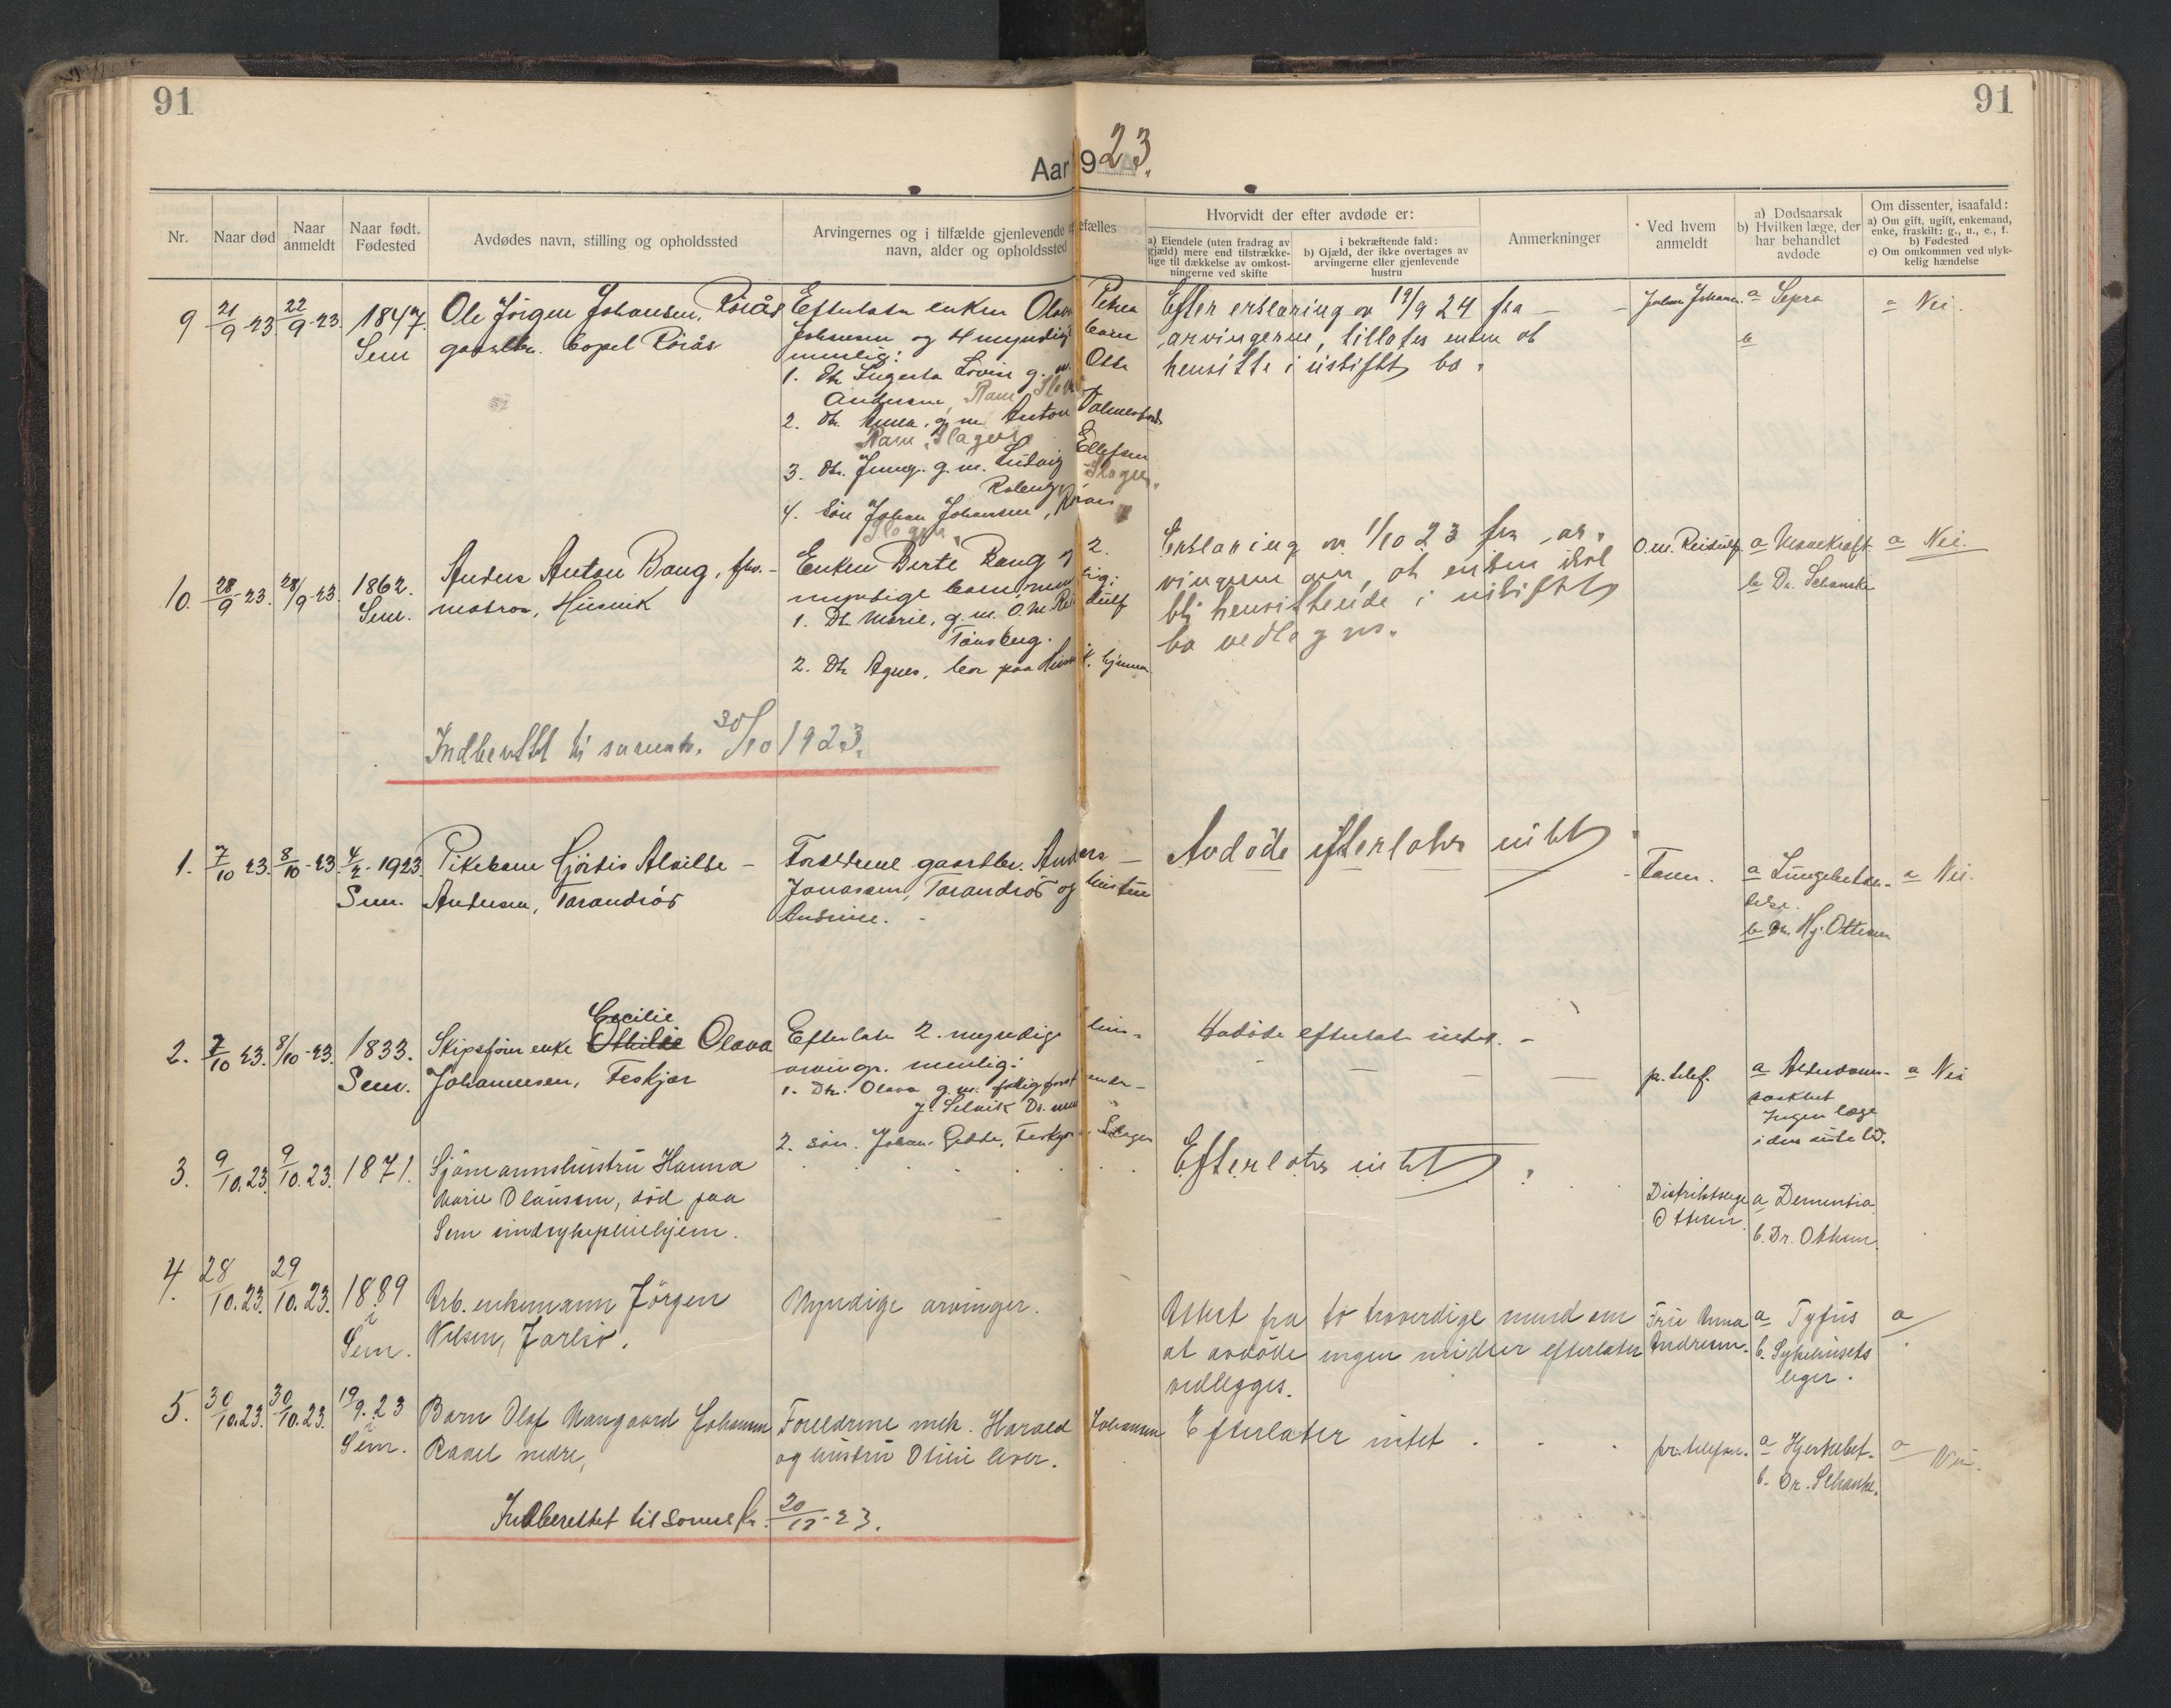 91
91
Aar 1923.
Nr.
Naar død
Naar anmeldt
Naar født. Fødested
Avdødes navn, stilling og opholdssted
Arvingernes og i tilfælde gjenlevende ægtefælles
navn, alder og opholdssted
Hvorvidt der efter avdøde er:
a) Eiendele (uten fradrag av gjæld) mere end tilstrækkelige til dækkelse av omkostningerne ved skifte
i bekræftende fald:
b) Gjæld, der ikke overtages av arvingerne eller gjenlevende hustru
Anmerkninger
Ved hvem anmeldt
a) Dødsaarsak
b) Hvilken læge, der har behandlet avdøde
Om dissenter, isaafald:
a) Om gift, ugift, enkemand, enke, fraskilt: g., u., e., f.
b) Fødested
c) Om omkommen ved ulykkelig hændelse
9 21/9 23. 22/9 23. 1847. Sem
Ole Jørgen Johansen, Rørås
gaardbr. Røråş
Efterlater enken Olava Petrea
Johansen og 4 myndige barn
nemlig:
1. Dtr. Lovise g. m. Otto
Andersen, Ram Slagen
2. Dtr. Anna, g. m. Anton
Ram, Slagen
3. Dtr. Jenny. g. m. Ludvig Ellefsen
Slagen.
4. Søn Johan Johansen, Røraas
Slagen
Efter erklæring av 19/9 24 fra
arvingerne, tillates enken at
hensitte i uskiftet bo.
Johan Johans.
a Sepra
b
a Nei.
10. 28/9 23. 28/9 23. 1862. Sem.
Anders Anton Bang, fhv.
matros, Husvik
Enken Berte Bang og 2.
myndige barn, nemlig:
1. Dtr. Marie, g. m. O. M. Reidulf
Tønsberg.
2. Dtr Agnes, bor paa Husvik. hjemme
Erklæring av 1/10 23 fra ar-
vingerne om, at enken skal
bli hensittende i uskiftet
bo vedlegges.
O. M. Reidulf
a Mavekræft
b Dr. Schanke
a Nei.
Indberettet til sorensk. 30/10 1923.
1. 7/10 23. 8/10-23. 4/2-1923. Sem.
Pikebarn Hjørdis Alvilde
Andersen, Tarandrød
Forældrene gaardbr. Anders
Jonassen, Tarandrød og hustru
Andrine.
Avdøde efterlater intet.
Faren.
a Lungebeten-
delse.
b Dr. Hj. Ottesen
a Nei.
2. 7/10 23. 8/10-23. 1833. Sem.
Cecilie
Skipsfører enke Othilde Olava
Johannesen, Feskjær
Efterlater 2. myndige livs-
arvinger. nemlig:
1. Dtr. Olava g. m.
J. Selvik
2. søn. Johan Gedde, Feskjær Slagen
Avdøde efterlot intet.
p. telef.
a Alderdoms-
svakhet
Ingen læge
i den siste tid.
a Nei
3. 9/10.23. 9/10.23. 1871.
Sjømannshustru Hanna
Marie Olaussen, død paa
Sem sindsykepleiehjem.
Efterlater intet.
Distriktslæge
Ottesen.
a Dementia
b. Dr. Ottesen.
4. 28/10.23. 29/10.23. 1889 i Sem.
Arb. enkemann Jørgen
Nilsen, Jarlsø.
Myndige arvinger.
Attest fra to troverdige mend om
at avdøde ingen midler efterlater
vedlegges.
Fru Anna
Andresen.
a Tyfus
b. Sykehusets
læger.
a
5. 30/10.23. 30/10.23. 19/9.23 i Sem.
Barn Olaf Vangaard Johansen
Ravel nedre,
Foreldrene mek. Harald Johansen
og hustru Otilie lever.
Efterlater intet.
pr. telefon.
a Hjertebet.
b. Dr. Schanke.
a Nei.
Indberettet til sorensk. 20/12-23.